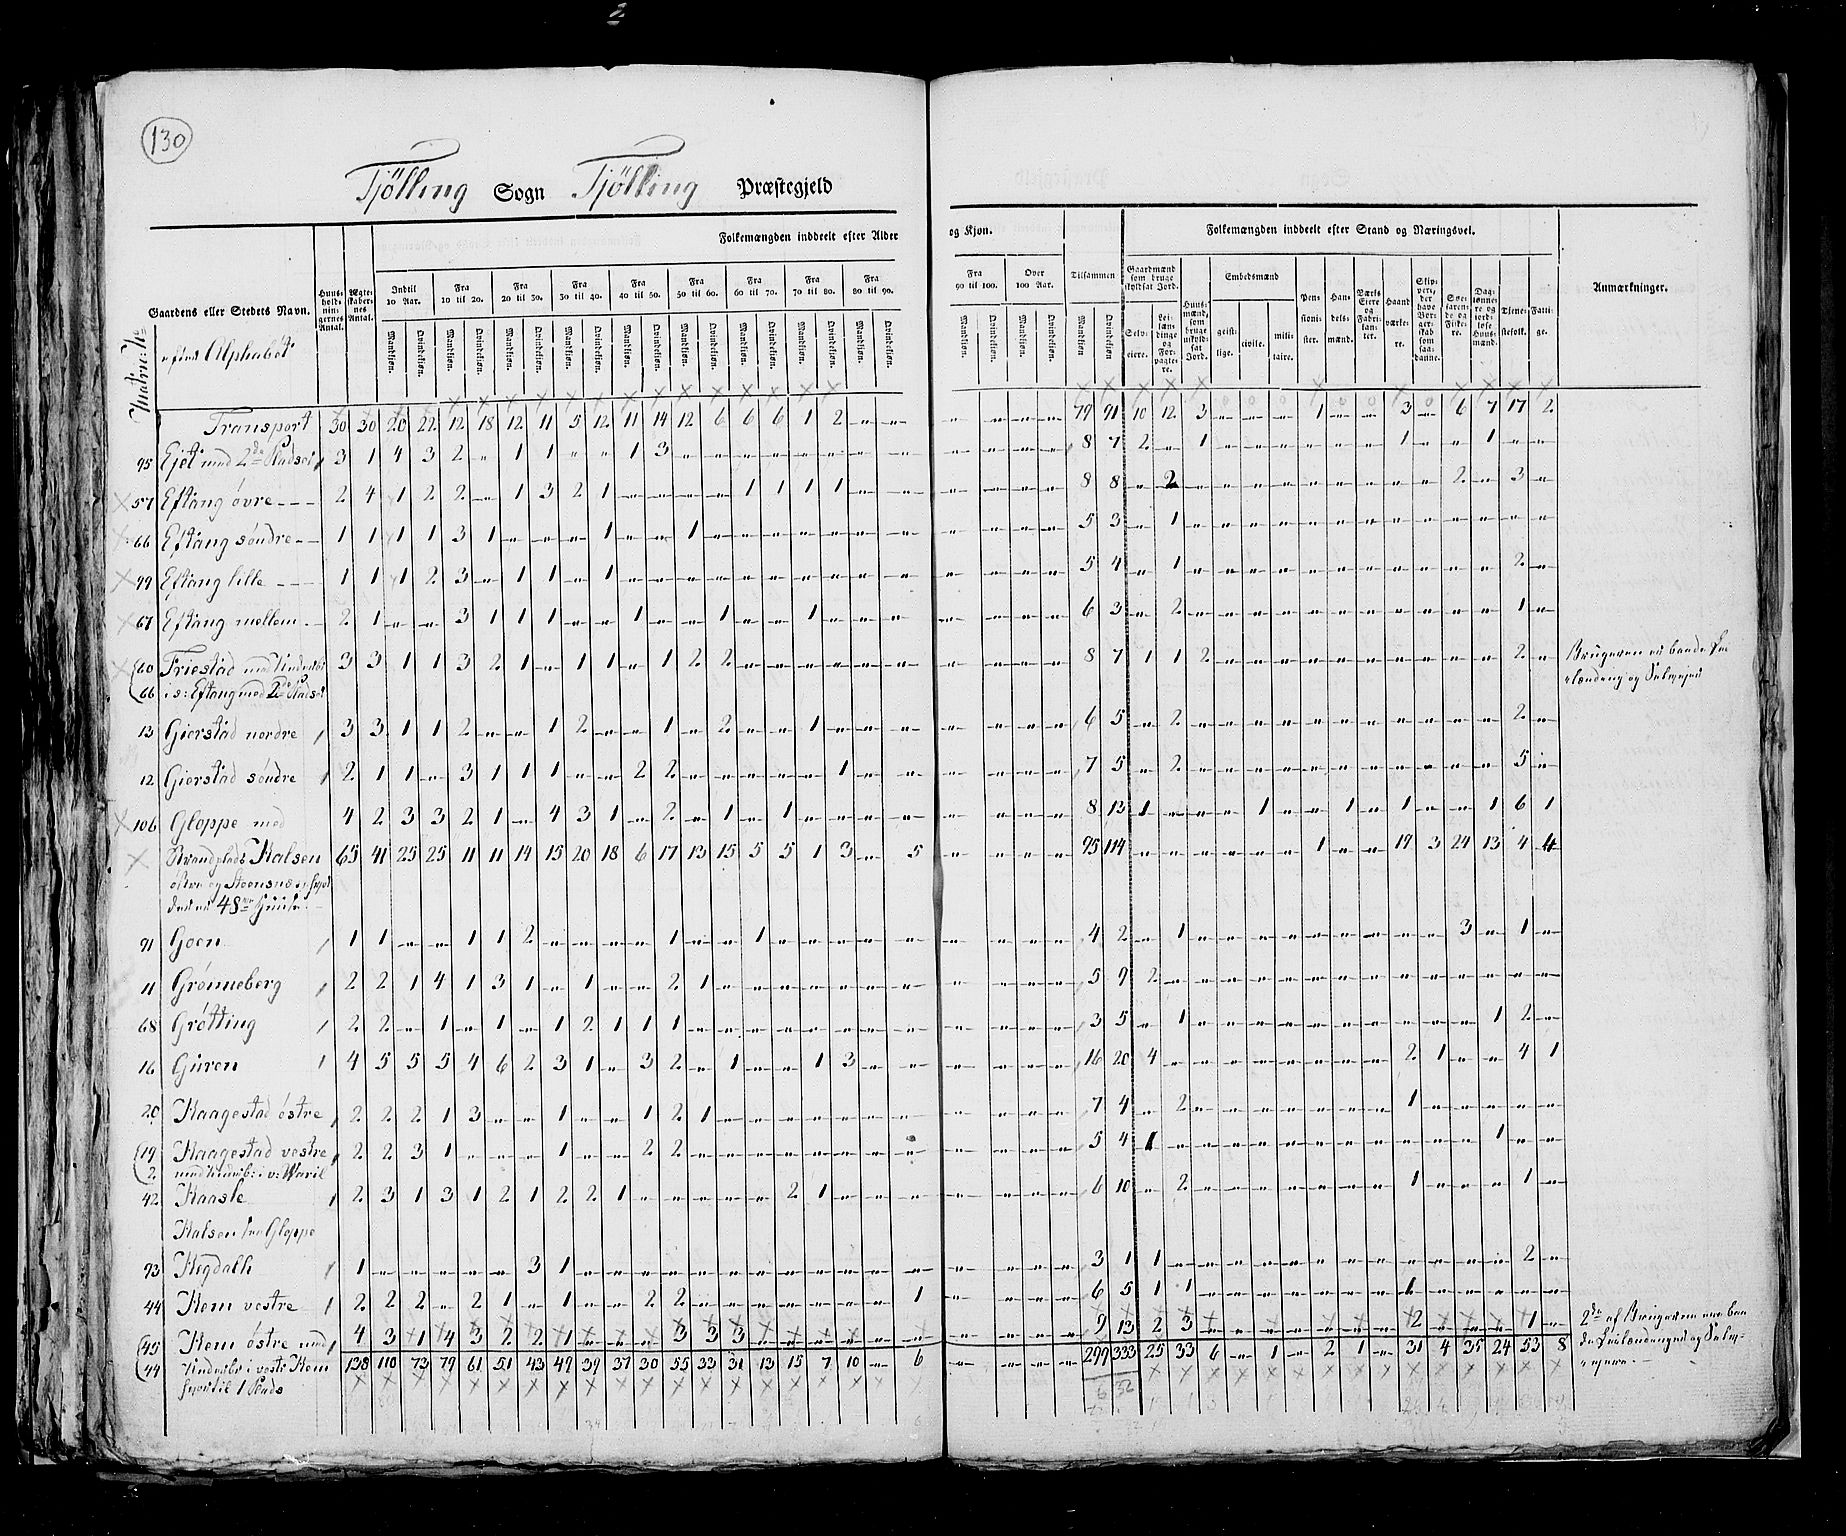 2
130
Tjölling Sogn Tjölling Præstegjeld
Gaardens eller Stedets Navn.
Huusholdningernes Antal.
Ægteskabernes Antal.
Folkemængden inddeelt efter Alder og Kjøn.
Indtil 10 Aar.
Fra 10 til 20.
Fra 20 til 30.
Fra 30 til 40.
Fra 40 til 50.
Fra 50 til 60.
Fra 60 til 70.
Fra 70 til 80.
Fra 80 til 90.
Fra 90 til 100.
Over 100 Aar.
Tilsammen
Mandkjøn. Qvindekjøn.
Folkemængden inddeelt efter Stand og Næringsvei.
Gaardmænd som bruge skyldsat Jord.
Selveiere.
Leilændinge og Forpagtere.
Huusmænd, som bruge uskyldsat Jord.
Embedsmænd
geistlige.
civile.
militaire.
Pensionister.
Handelsmænd.
Værkseiere og Fabrikanter.
Haandværkere.
Skippere, der have Borgerskab som saadanne.
Søefarende og Fiskere.
Daglønnere og jordløse Huusmænd.
Tjenestefolk.
Fattige.
Anmærkninger.
Matric: No
efter Alphabet
Transport 30 30 20 22 12 18 12 11 5 12 11 14 12 6 6 6 1 2 " " " " " " 79 91 10 12 3 " " " 1 " " 3 " 6 7 17 2
95 Ejet med 2de Pladser 3 1 4 3 2 " 1 1 " " 1 3 " " " " " " " " 8 7 2 " 1 " " " " " " 1 " " 1 " "
57 Eftang övre 2 4 1 2 2 " 1 3 2 1 " " " " 1 1 1 1 " " 8 8 " 2 " " " " " " " " " 2 " 3 "
66 Eftang söndre 1 1 1 1 3 1 " " " 1 " " 1 " " " " " " " 5 3 " 1 " " " " " " " " " " " " "
99 Eftang lille 1 1 1 2 3 " 1 1 " 1 " " " " " " " " " " 5 4 " 1 " " " " " " " " " " " 2 "
67 Eftang mellem 2 1 " " 3 1 1 1 " " 1 " " 1 " " 1 " " " 6 3 " 2 " " " " " " " " " " " 1 "
60 Friestad med Underbr 3 3 1 1 3 2 1 " 1 1 " 1 2 2 " " " " " " 8 7 1 1 2 " " " " " " " " " " 2 "
66 i s: Eftang med 2de Pladser
13 Gierstad nordre 3 3 1 1 2 " " 1 2 " " 1 " 2 " " 1 " " " 6 5 " 2 " " " " " " " " " " " 2 "
12 Gierstad söndre 2 1 1 " 3 1 1 1 " " 2 2 " " " " " 1 " " 7 5 " 2 " " " " " " " " " " " 5 "
106 Gloppe med 4 2 3 3 2 1 " 4 3 1 " 2 " 1 " 1 " " " " 8 13 1 " " " 1 " " 1 " 1 " " 1 6 1
Strandplads Kalsen 65 41 25 25 11 11 14 15 20 18 6 17 13 15 5 5 1 3 " 5 95 114 " " " " " " 1 " " 19 3 24 13 4 4
48 Huuse
91 Goen 1 1 " " 1 1 2 " " " " 1 " " 1 " " " " " 4 2 " 1 " " " " " " " " " 3 " 1 "
11 Grönneberg 2 2 1 4 1 3 1 " 1 " " 2 1 " " " " " " " 5 9 2 " " " " " " " " " " " " " "
68 Grötting 2 2 " 1 " 1 " 1 2 1 1 1 " " " " " " " " 3 5 " 1 " " " " " " " " " " 1 2 "
16 Guren 4 5 5 5 4 6 2 3 1 " 3 2 " 1 " " 1 3 " " 16 20 4 " " " " " " " " 2 1 " " 4 1
20 Haagestad östre 2 2 2 1 3 " " 1 " " 1 2 1 " " " " " " " 7 4 " 2 " " " " " " " 1 " " " " "
19 Haagestad vestre 2 2 3 1 " " " 1 " " 2 2 " " " " " " " " 5 4 1 " " " " " " " " " " " 1 " "
2 med Underbr: i v: Waril
42 Haasle 2 3 1 3 1 2 1 2 2 1 " " " " " 2 1 " " " 6 10 " 2 " " " " " " " 1 " " " 1 "
Kalsen see Gloppe
93 Hegdalh 1 " " " " " 3 1 " " " " " " " " " " " " 3 1 1 " " " " " " " " " " " " 2 "
44 Hem vestre 2 2 2 " 2 1 " 1 " " 2 2 " " " " " " " 1 6 5 1 1 " " " " " " " 1 " " " " "
45 Hem östre med 4 3 1 4 3 2 2 1 " " " 3 3 3 " " " " " " 9 13 2 3 " " " " " " " 2 " " " 1 "
44 Underbr i vestr Hem 138 110 73 79 61 51 43 49 39 37 30 55 33 31 13 15 7 10 " 6 299 333 25 33 6 " 1 " 2 1 " 31 4 35 24 53 8
samt til 1 Plads
6 32
Brugeren er baade
og
2de af Brugerne ere baade
og